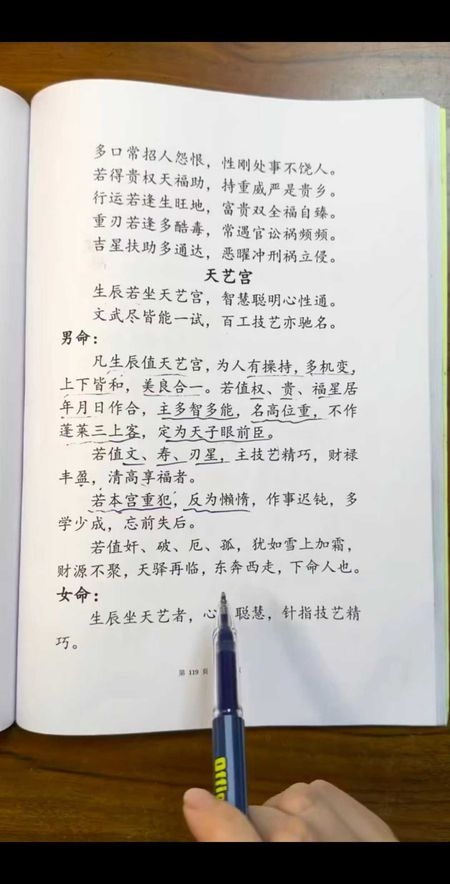 多口常招人怨恨，性刚处事不饶人。
若得贵权天福助，持重威严是贵乡。
行运若逢生旺地，富贵双全福自臻。
重刃若逢多酷毒，常遇官讼祸频频。
吉星扶助多通达，恶曜冲刑祸立侵。
天艺宫
生辰若坐天艺宫，智慧聪明心性通。
文武尽皆能一试，百工技艺亦驰名。
男命：
凡生辰值天艺宫，为人有操持，多机变，
上下皆和，美良合一。若值权、贵、福星居
年月日作合，主多智多能，名高位重，不作
蓬莱三上客，定为天子眼前臣。
若值文、寿、刃星，主技艺精巧，财禄
丰盈，清高享福者。
若本宫重犯，反为懒惰，作事迟钝，多
学少成，忘前失后。
若值奸、破、厄、孤，犹如雪上加霜，
财源不聚，天驿再临，东奔西走，下命人也。
女命：
生辰坐天艺者，心 聪慧，针指技艺精
巧。
第 119 页